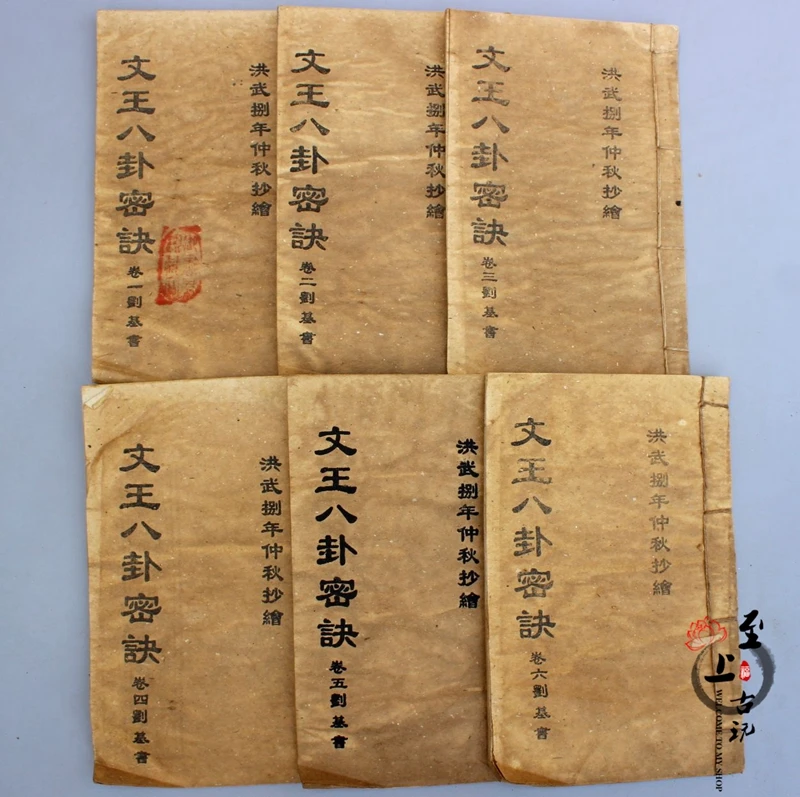 洪武捌年仲秋抄繪
文王八卦密訣 卷一 劉基書
洪武捌年仲秋抄繪
文王八卦密訣 卷二 劉基書
洪武捌年仲秋抄繪
文王八卦密訣 卷三 劉基書
洪武捌年仲秋抄繪
文王八卦密訣 卷四 劉基書
洪武捌年仲秋抄繪
文王八卦密訣 卷五 劉基書
洪武捌年仲秋抄繪
文王八卦密訣 卷六 劉基書
至上古玩
WELCOME TO MY SHOP